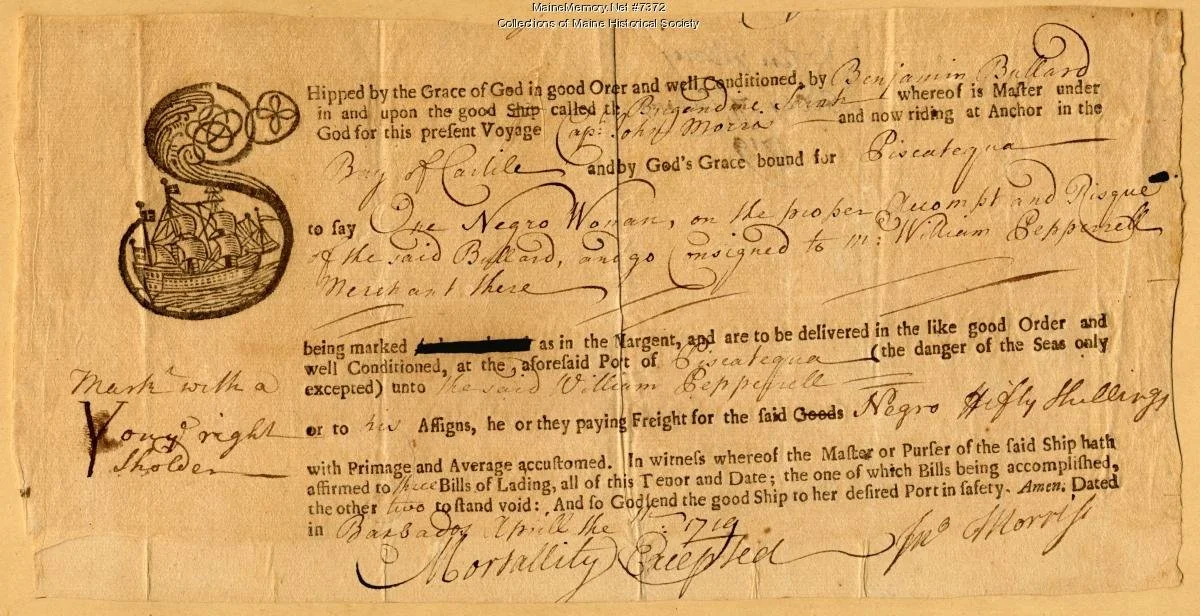 MaineMemory.Net #7372
Collections of Maine Historical Society
SHipped by the Grace of God in good Orer and well Conditioned, by Benjamin Bullard
in and upon the good Ship called the Bregandine Sarah whereof is Master under
God for this present Voyage Capt: John Morris and now riding at Anchor in the
Bay of Carlile and by God's Grace bound for Piscatequa
to say One Negro Woman, on the proper Accompt and Risque
of the said Bullard, and go Consigned to mr: William Pepperrell
Merchant there
being marked as in the Margent, and are to be delivered in the like good Order and
well Conditioned, at the aforesaid Port of Piscatequa (the danger of the Seas only
excepted) unto the said William Pepperrell
Markd with a
Y on ye right
Sholder
or to his Assigns, he or they paying Freight for the said Goods Negro Fifty Shillings
with Primage and Average accustomed. In witness whereof the Master or Purser of the said Ship hath
affirmed to three Bills of Lading, all of this Tenor and Date; the one of which Bills being accomplished,
the other two to stand void: And so God send the good Ship to her desired Port in safety. Amen. Dated
in Barbados Aprill the 1719
Mortallity Excepted Jno Morris